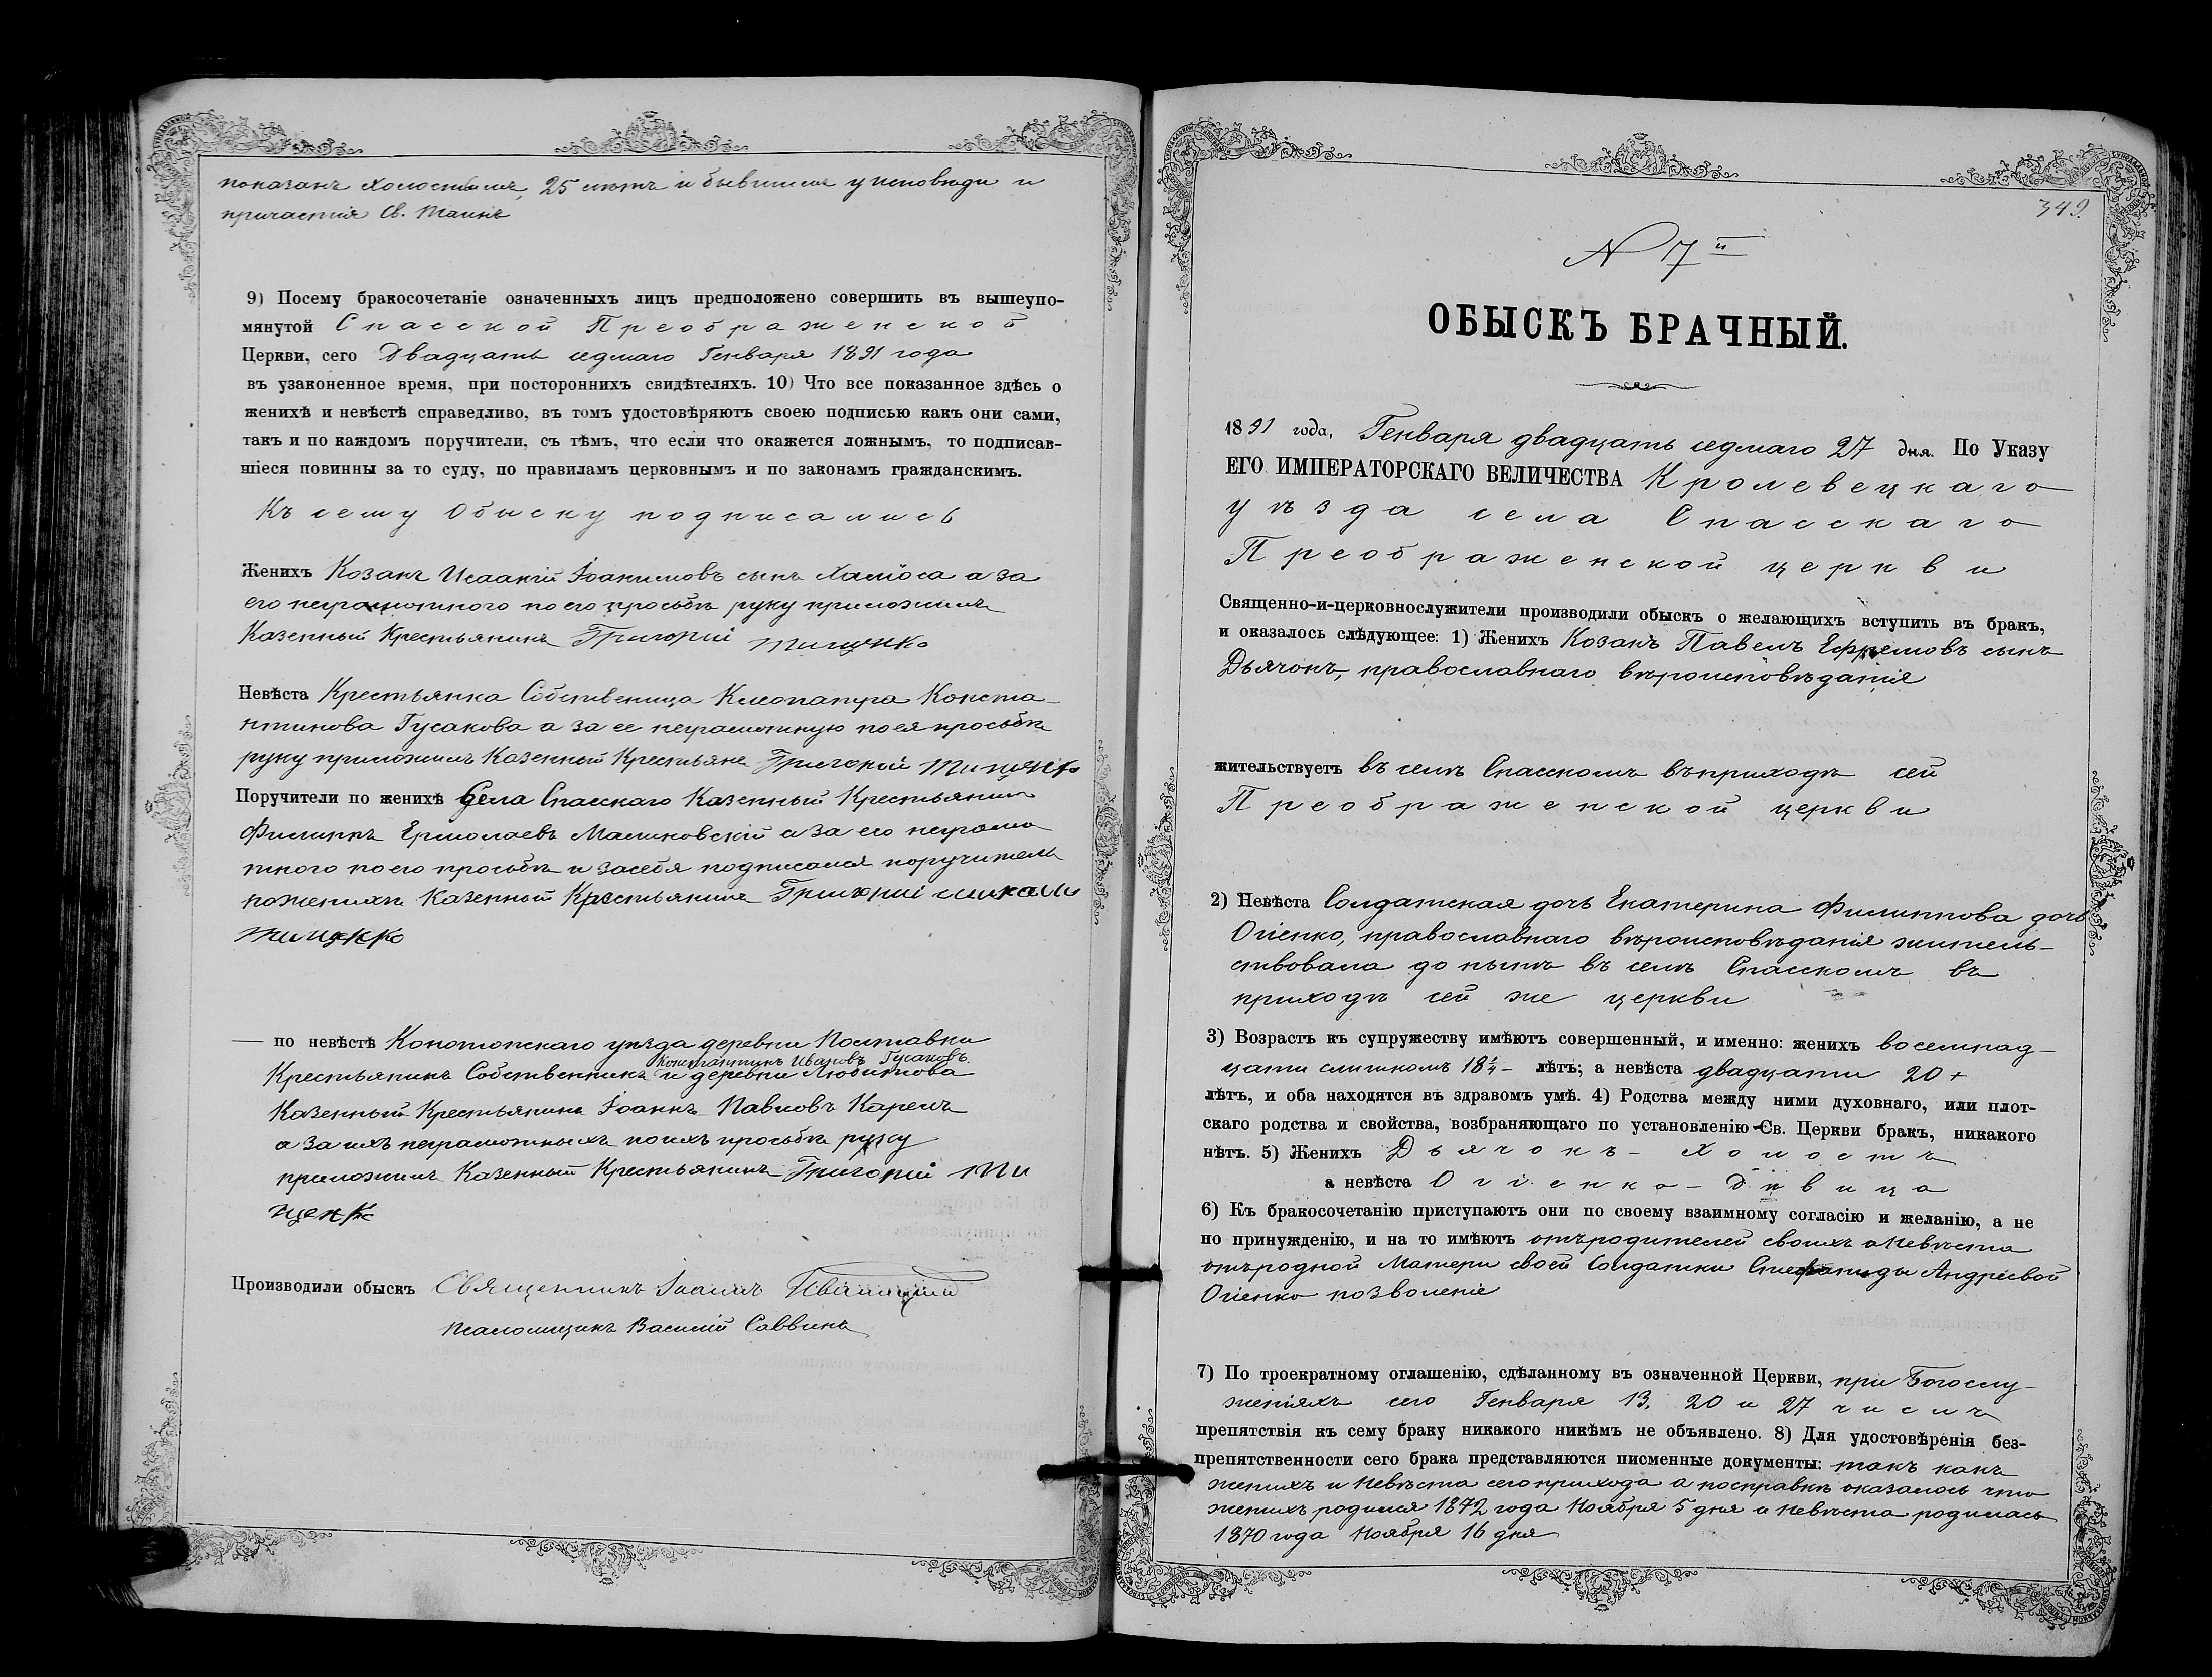 показанъ холостымъ, 25 лѣтъ и бывшимъ у исповѣди и
причастія Св. Таинъ
9) Посему бракосочетаніе означенныхъ лицъ предположено совершить въ вышеупо-
мянутой Спасской Преображенской
Церкви, сего Двадцать седмаго Генваря 1891 года
въ узаконенное время, при постороннихъ свидѣтеляхъ. 10) Что все показанное здѣсь о
женихѣ и невѣстѣ справедливо, въ томъ удостовѣряютъ своею подписью какъ они сами,
такъ и по каждомъ поручители, съ тѣмъ, что если что окажется ложнымъ, то подписав-
шіеся повинны за то суду, по правиламъ церковнымъ и по законамъ гражданскимъ.
Къ сему Обыску подписались
Женихъ Козакъ Исаакій Іоакимовъ сынъ а за
его неграмотного по его просьбѣ руку приложилъ
Казенный Крестьянинъ Григорій Тищенко
Невѣста Крестьянка Собственица Клеопатра Конста-
нтинова Гусакова а за ее неграмотную по ея просьбѣ
руку приложилъ Казенный Крестьяне Григорий Тищенко
Поручители по женихѣ Села Спасскаго Казенный Крестьянин
Филиппъ Ермолаевъ Малиновскій а за его неграмо
тного по его просьбѣ и за себя подписался поручитель
по женихѣ Казенный Крестьянинъ Григорій
Тищенко
— по невѣстѣ Конотопскаго уѣзда деревни Поставки
Константинъ Ивановъ Гусаковъ.
Крестьянинъ Собственникъ и деревни Любитова
Казенный Крестьянинъ Іоаннъ Павловъ Карель
а за ихъ неграмотныхъ по ихъ просьбѣ руку
приложилъ Казенный Крестьянинъ Григорій Ти
щенко
Производили обыскъ Священникъ Іоаннъ
Псаломщикъ Василій Саввинъ
349.
N 7й
ОБЫСКЪ БРАЧНЫЙ.
1891 года, Генваря двадцать седмаго 27 дня. По Указу
ЕГО ИМПЕРАТОРСКАГО ВЕЛИЧЕСТВА Кролевецкаго
уѣзда села Спасскаго
Преображенской церкви
Священно-и-церковнослужители производили обыскъ о желающихъ вступить въ бракъ,
и оказалось слѣдующее: 1) Женихъ Козакъ Павелъ Ефремовъ сынъ
Дьячокъ, православнаго вѣроисповѣданія
жительствуетъ въ селѣ Спасскомъ въ приходѣ сей
Преображенской церкви
2) Невѣста Солдатская дочь Екатерина Филиппова дочь
Огіенко, православнаго вѣроисповѣданія житель-
ствовала до нынѣ въ селѣ Спасскомъ въ
приходѣ сей же церкви
3) Возрастъ къ супружеству имѣютъ совершенный, и именно: женихъ восемнад-
цати слишкомъ 18¼ - лѣтъ; а невѣста двадцати 20+
лѣтъ, и оба находятся въ здравомъ умѣ. 4) Родства между ними духовнаго, или плот-
скаго родства и свойства, возбраняющаго по установленію Св. Церкви бракъ, никакого
нѣтъ. 5) Женихъ Дьячокъ - Холостъ
а невѣста Огіенко - Дѣвица
6) Къ бракосочетанію приступаютъ они по своему взаимному согласію и желанію, а не
по принужденію, и на то имѣютъ отъ родителей своихъ а Невѣста
отъ родной Матери своей Солдатки Стефаниды Андреевой
Огіенко позволеніе
7) По троекратному оглашенію, сдѣланному въ означенной Церкви, при Богослу-
женіяхъ сего Генваря 13, 20 и 27 числъ
препятствія къ сему браку никакого никѣмъ не объявлено. 8) Для удостовѣренія без-
препятственности сего брака представляются писменные документы: такъ какъ
женихъ и Невѣста сего прихода а посправкѣ оказалось что
женихъ родился 1872 года Ноября 5 дня и Невѣста родилась
1870 года Ноября 16 дня